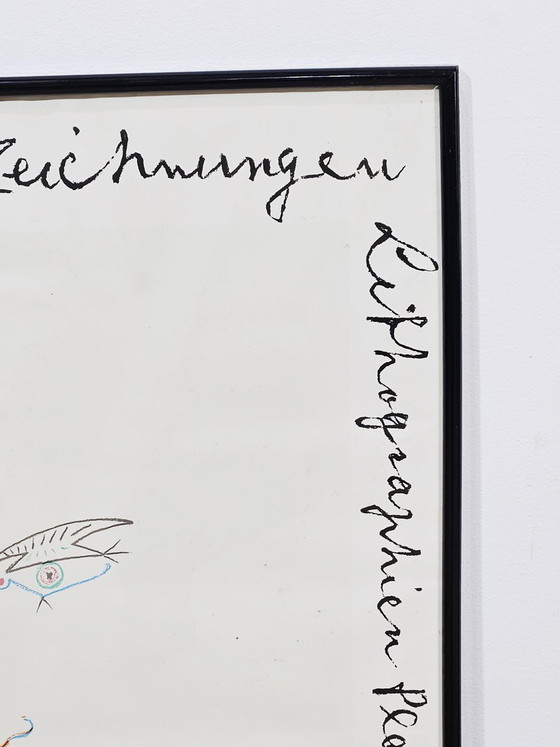 Zeichnungen
Lithographien Pla